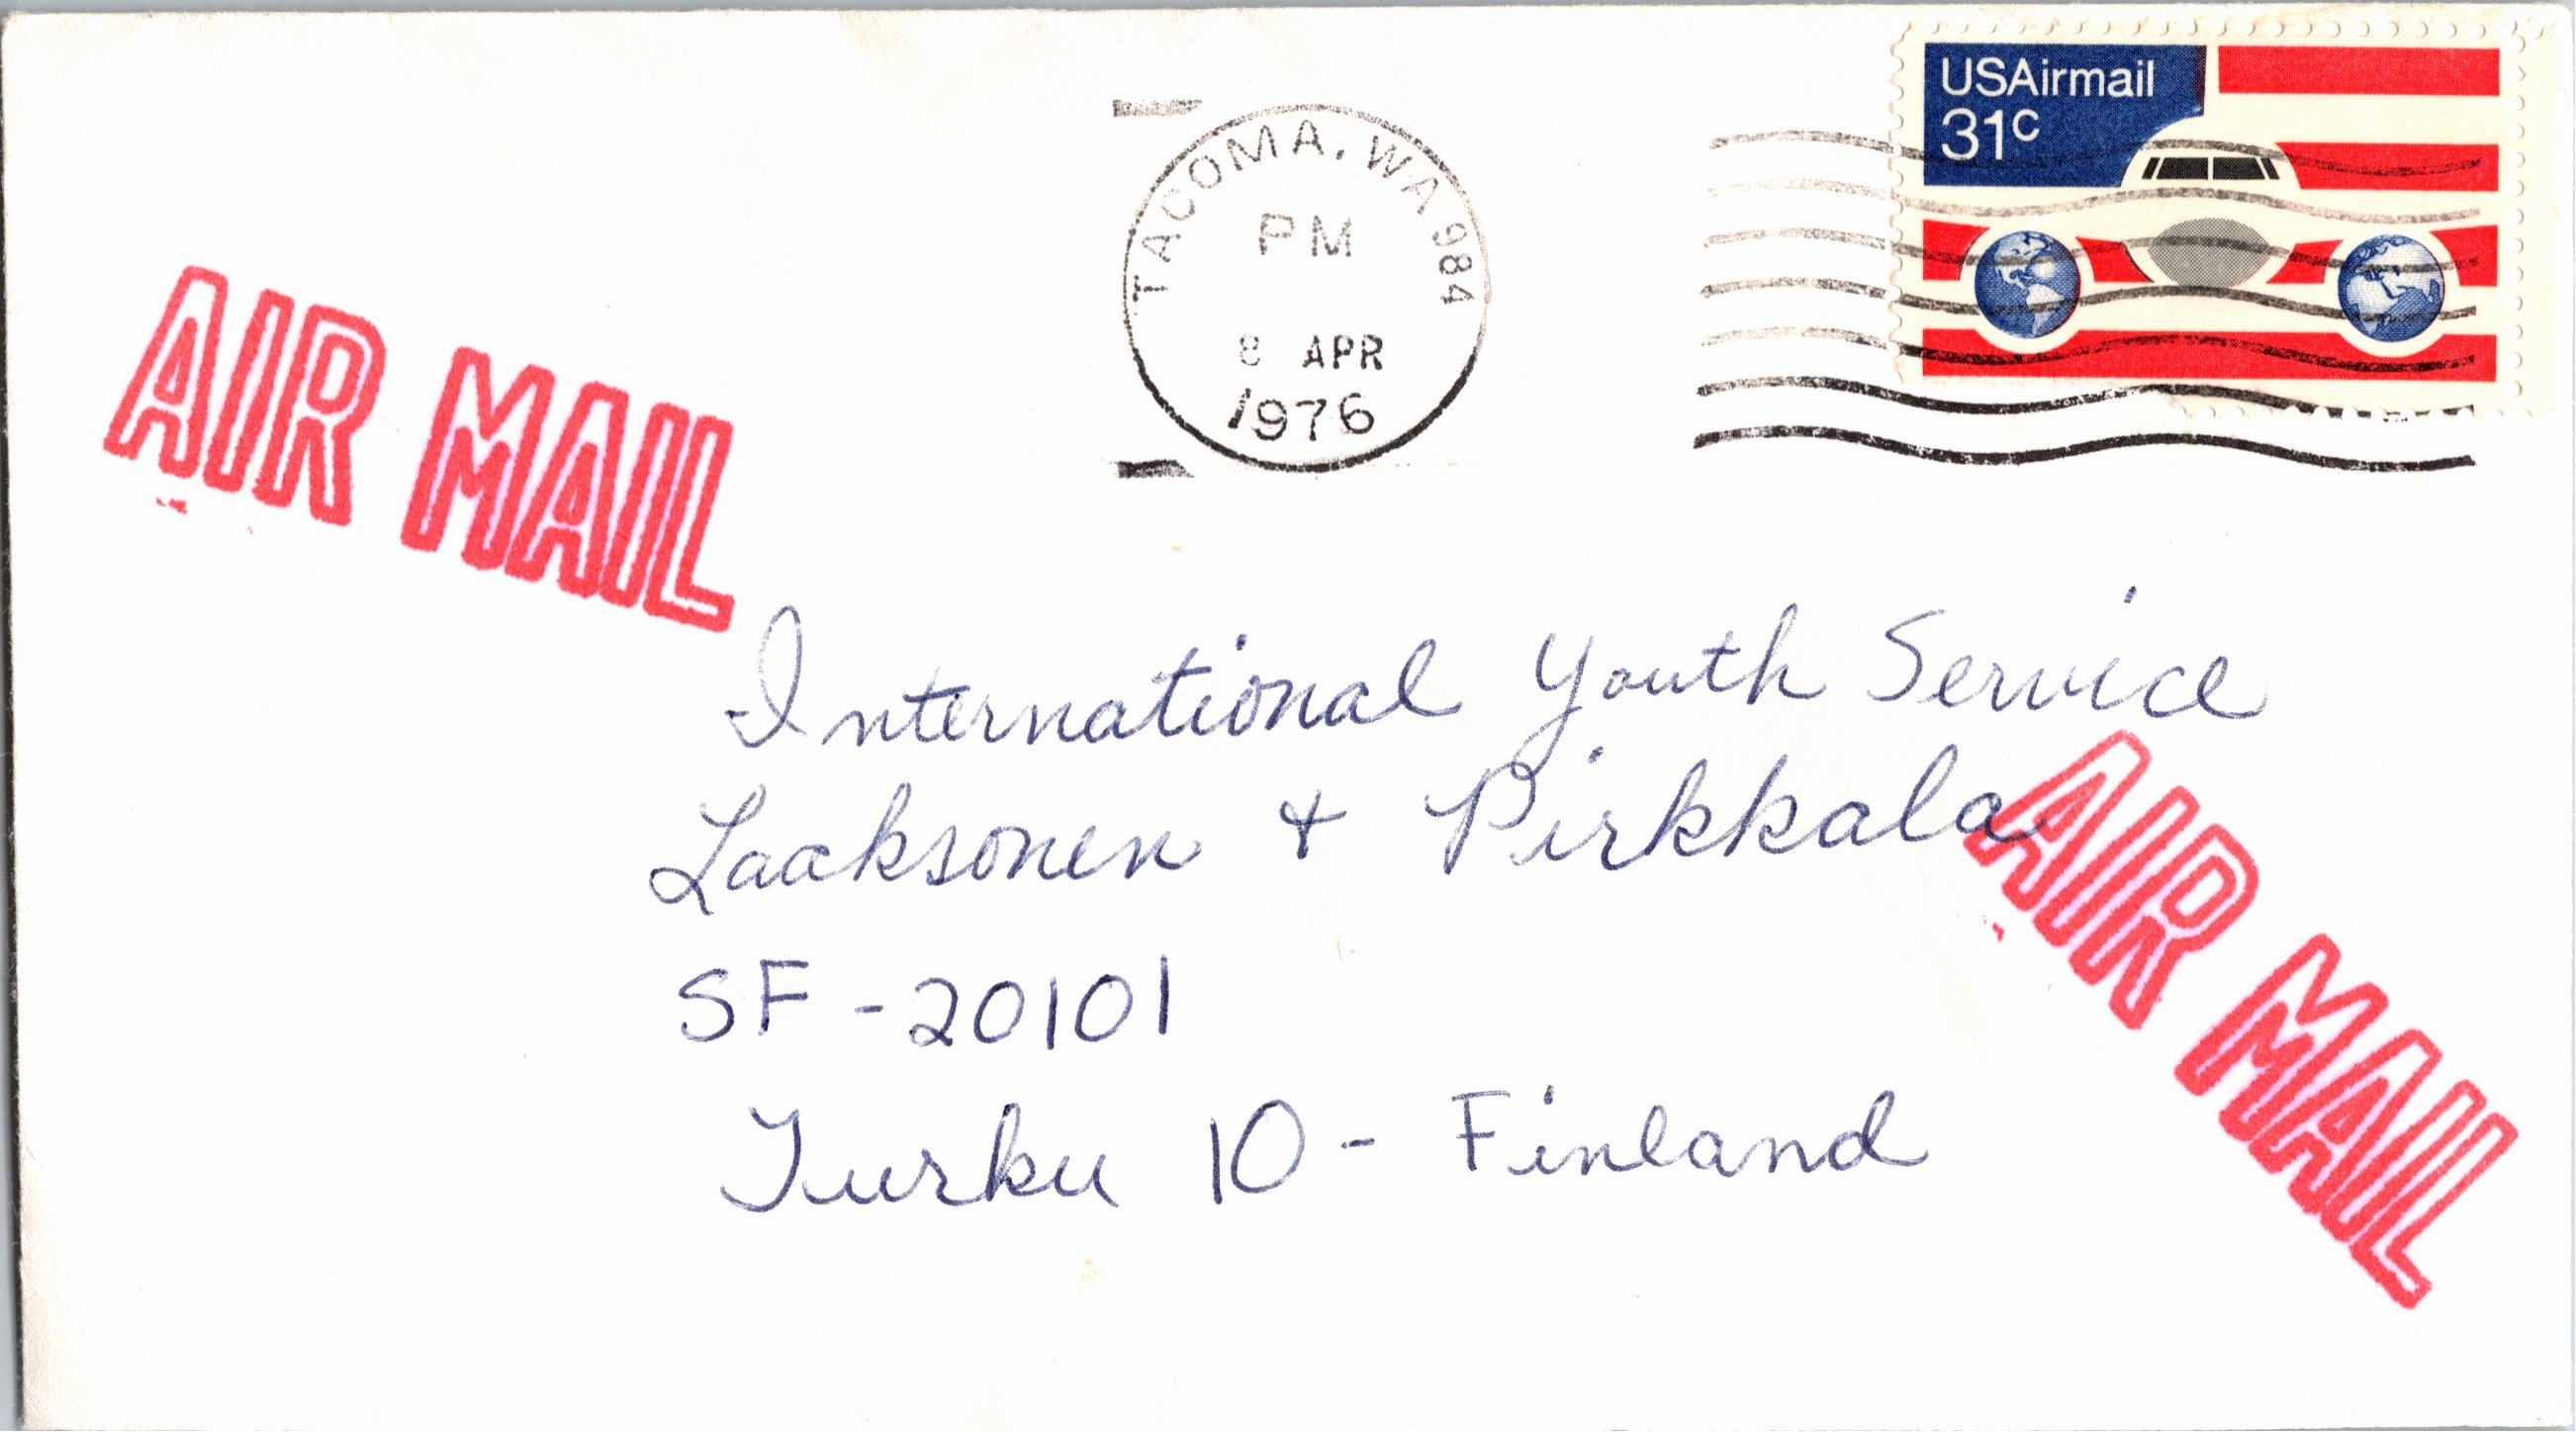 USAirmail
31c
TACOMA, WA 984
PM
8 APR
1976
AIR MAIL
International Youth Service
Laaksonen + Pirkkala
SF-20101
Turku 10 - Finland
AIR MAIL